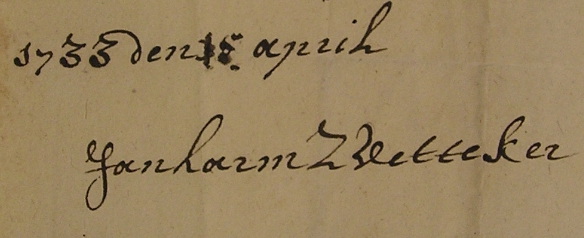 1733 den 18 april
Janharm Wetteker